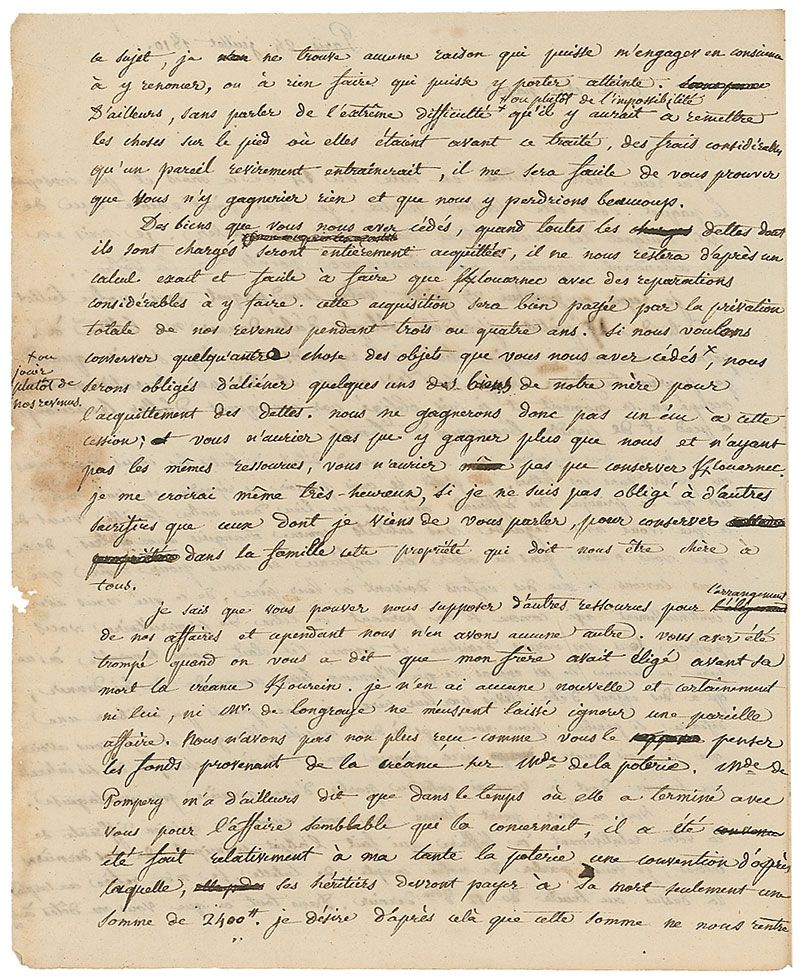 ce sujet, je ne trouve aucune raison qui puisse m'engager en conscience
à y renoncer, ou à rien faire qui puisse y porter atteinte.
+ ou plutôt de l'impossibilité
D'ailleurs, sans parler de l'extrême difficulté + qu'il y aurait a remettre
les choses sur le pied où elles étaient avant ce traité, des frais considérables
qu'un pareil revirement entraînerait, il me sera facile de vous prouver
que vous n'y gagneriez rien et que nous y perdrions beaucoup.
Des biens que vous nous avez cédés, quand toutes les dettes dont
ils sont chargés seront entièrement acquittées, il ne nous restera d'après un
calcul exact et facile à faire que Klouarnec avec des reparations
considérables à y faire. cette acquisition sera bien payée par la privation
totale de nos revenus pendant trois ou quatre ans. Si nous voulons
conserver quelqu'autre chose des objets que vous nous avez cédés +, nous
+ ou
jouir
plutôt de
nos revenus.
serons obligés d'aliéner quelques uns des biens de notre mère pour
l'acquittement des dettes. nous ne gagnerons donc pas un écu à cette
cession; et vous n'auriez pas pu y gagner plus que nous et n'ayant
pas les mêmes ressources, vous n'auriez pas pu conserver Klouarnec.
je me croirai même très-heureux, si je ne suis pas obligé à d'autres
sacrifices que ceux dont je viens de vous parler, pour conserver
dans la famille cette propriété qui doit nous être chère à
tous.
je sais que vous pouvez nous supposer d'autres ressources pour l'arrangement
de nos affaires et cependant nous n'en avons aucune autre. vous avez été
trompé quand on vous a dit que mon frère avait éligé avant sa
mort la créance Kourein. je n'en ai aucune nouvelle et certainement
ni lui, ni Mr. de longroye ne m'eussent laissé ignorer une pareille
affaire. Nous n'avons pas non plus reçu comme vous le penser
les fonds provenant de la créance sur Mde de la poterie. Mde de
Pompery m'a d'ailleurs dit que dans le temps où elle a terminé avec
vous pour l'affaire semblable qui la concernait, il a été
été fait relativement à ma tante la poterie une convention d'après
laquelle, ses héritiers devront payer à sa mort seulement une
somme de 2400tt. je désire d'après celà que cette somme ne nous rentre